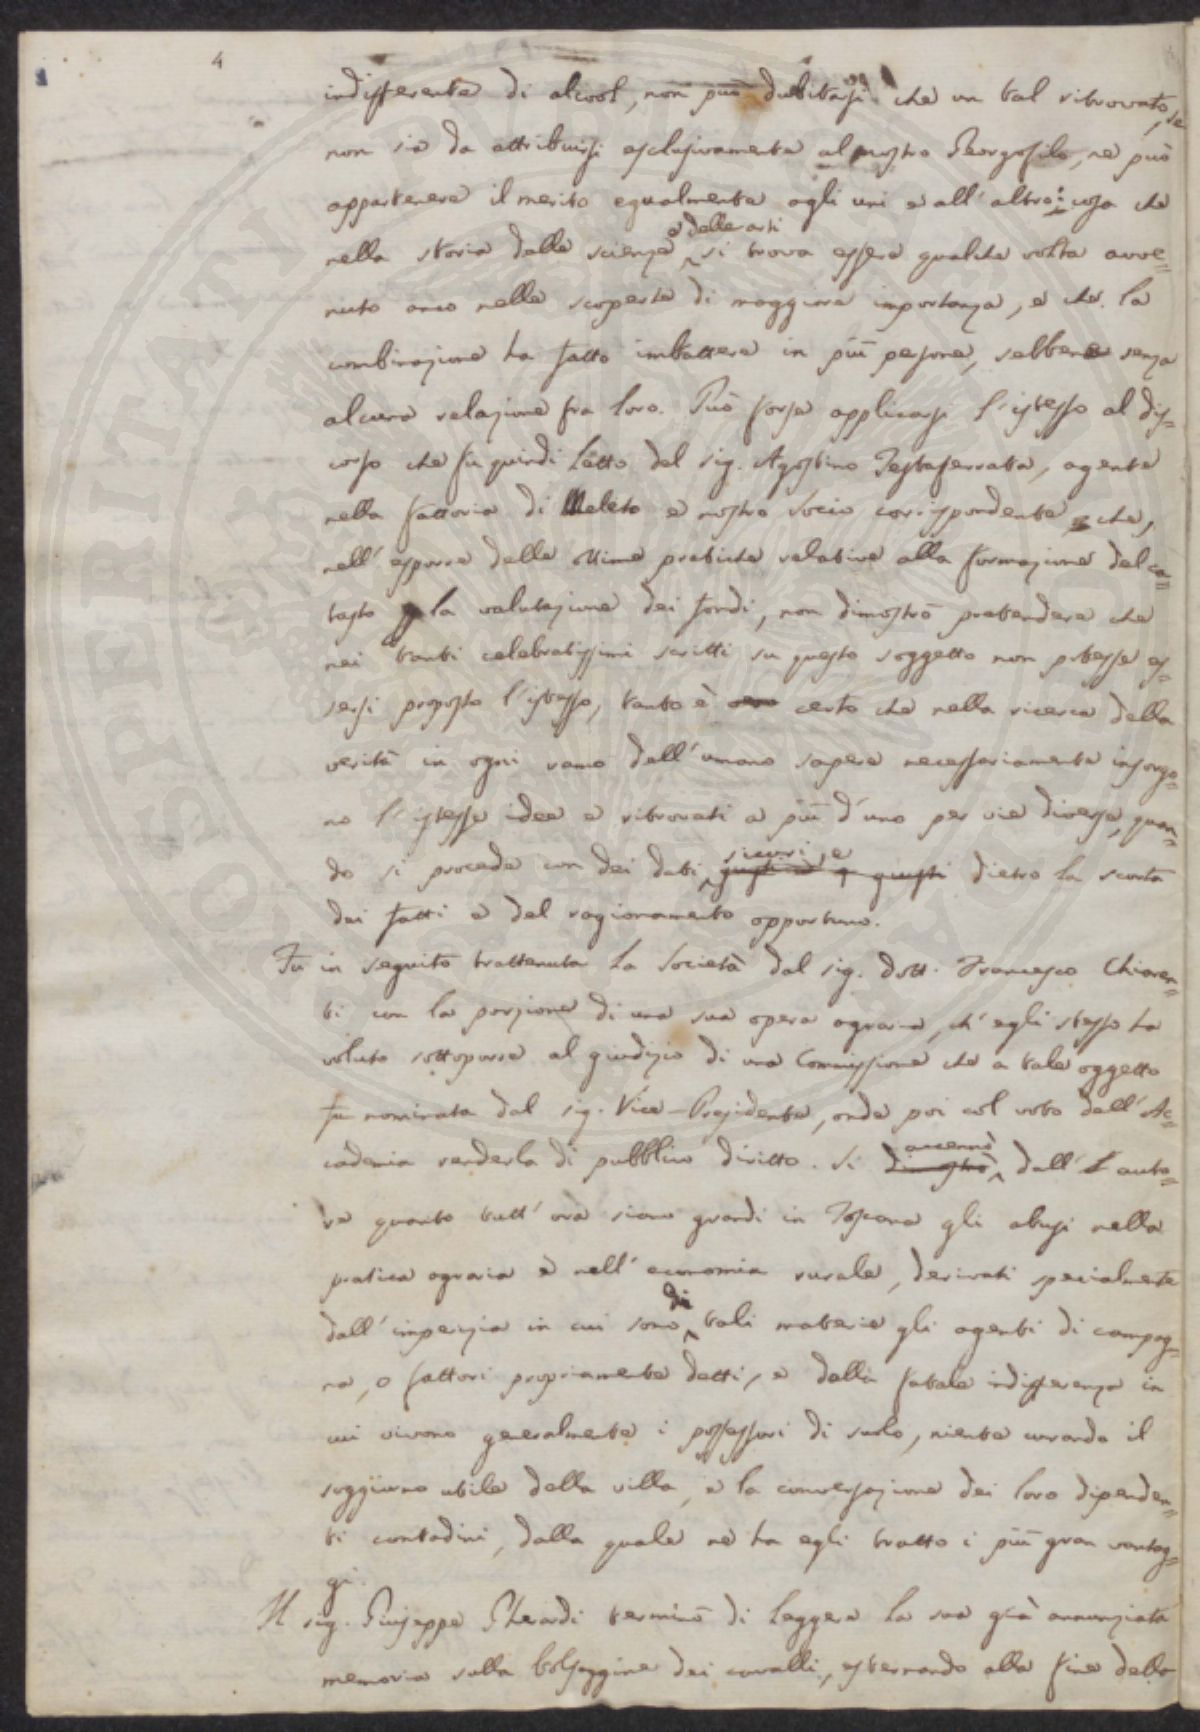 4
indifferente di alcool, non può dubitarsi che un tal ritrovato, se
non sia da attribuirsi esclusivamente al nostro Georgofilo, ne può
appartenere il merito egualmente agli uni e all'altro: cosa che
nella storia delle scienze e delle arti si trova essere qualche volta avve=
nuto anco nelle scoperte di maggiore importanza, e che la
combinazione ha fatto imbattere in più persone, sebbene senza
alcuna relazione fra loro. Può forse applicarsi l'istesso al dis=
corso che fu quindi letto dal sig. Agostino Testaferrata, agente
nella fattoria di Meleto e nostro socio corrispondente che,
nell'esporre delle ottime pratiche relative alla formazione del ca=
tasto la valutazione dei fondi, non dimostrò pretendere che
nei tanti celebratissimi scritti su questo soggetto non potesse es=
sersi proposto l'istesso, tanto è certo che nella ricerca della
verità in ogni ramo dell'umano sapere necessariamente insorgo=
no l'istesse idee e ritrovati a più d'uno per vie diverse, quan=
do si proceda con dei dati sicuri, e giusti dietro la scorta
dei fatti e del ragionamento opportuno.
Fu in seguito trattenuta la Società dal sig. Dott. Francesco Chiaren=
ti con la porzione di una sua opera agraria, ch'egli stesso ha
voluto sottoporre al giudizio di una Commissione che a tale oggetto
fu nominata dal sig. Vice-Presidente, onde poi col voto dell'Ac=
cademia renderla di pubblico diritto. Si dimostrò accennò dall'auto=
re quanto tutt'ora siano grandi in Toscana gli abusi nella
pratica agraria e nell'economia rurale, derivati specialmente
dall'imperizia in cui sono di tali materie gli agenti di campag=
na, o fattori propriamente detti, e dalla fatale indifferenza in
cui vivono generalmente i possessori di suolo, niente curando il
soggiorno utile della villa, e la conversazione dei loro dipenden=
ti contadini, dalla quale ne ha egli tratto i più gran vantag=
gi.
Il sig. Giuseppe Gherardi terminò di leggere la sua già annunziata
memoria sulla bolsaggine dei cavalli, esternando alla fine della